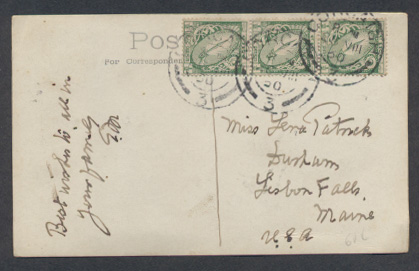 Post
For Correspondence
Best wishes to all in
your family
Miss Lena Patrick
Durham
Lisbon Falls,
Maine
U.S.A